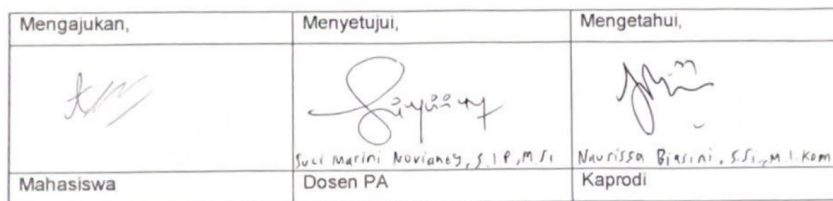 Mengajukan, Menyetujui, Mengetahui,
Suci Marini Novianty, S.IP, M.Si Naurissa Biasini, S.Si., M.I.Kom
Mahasiswa Dosen PA Kaprodi